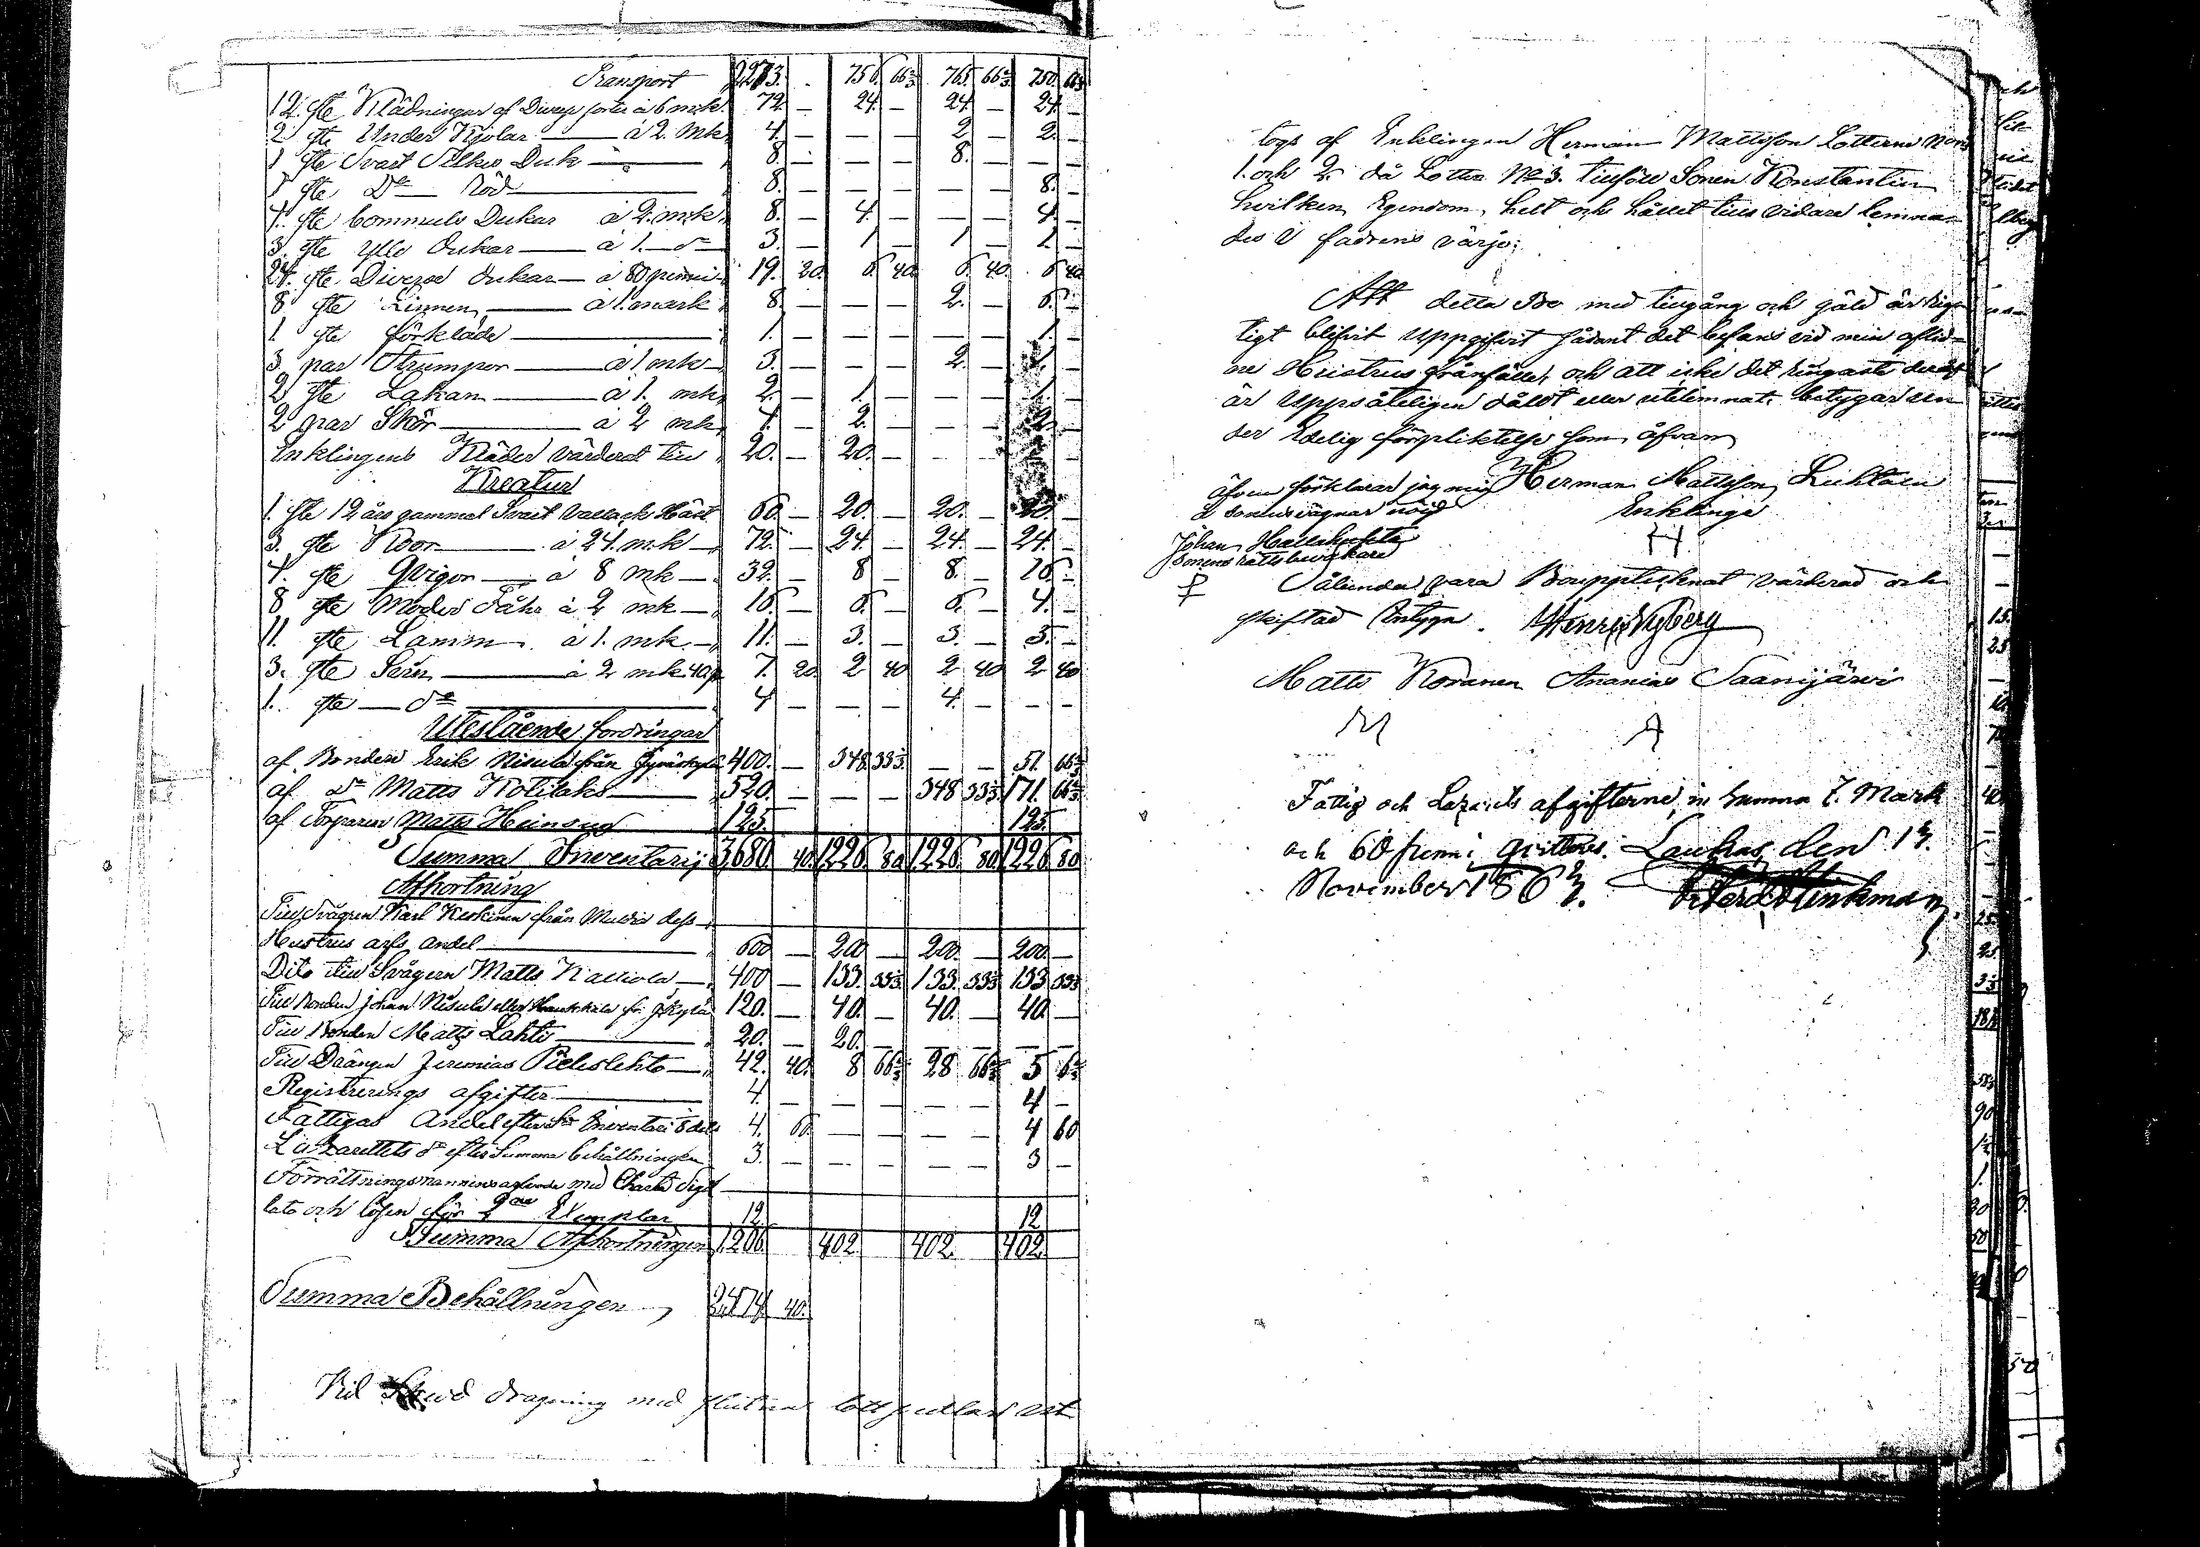 Transport 2273. . 756 66⅔ 765 66⅔ 750 66⅔
12. ste Klädningar af Divers sorter à 6 mk. 72. — 24. — 24. — 24. —
2 ste Under Kjolar — à 2. mk 4. — — — 2. — 2. —
1 ste Svart Silkes Duk — 8. — — — 8. — — —
1 ste Do Röd — 8. — — — — — 8. —
4. ste bommuls Dukar à 2. mk 8. — 4. — — — 4. —
3. ste Ylle Dukar — à 1. do 3. — 1 — 1 — 1 —
24. ste Diverse Dukar — à 80 penni 19. 20. 6. 40. 6. 40. 6 40
8 ste Linnen — à 1. mark 8. — — — 2. — 6. —
1 ste förkläde — 1. — — — — — 1. —
3 par Strumpor — à 1 mk 3. — — — 2. — 1. —
2 ste Lakan — à 1. mk 2. — 1. — — — 1 —
2 par Skor — à 2 mk 4. — 2. — — — 2. —
Enklingens Kläder värderat till 20. — 20. — — — — —
Kreatur
1. ste 12 års gammal Svart Vallack Häst 60. — 20. — 20. — 20. —
3. ste Koor — à 24. mk 72. — 24. — 24. — 24. —
4. ste Qvigor — à 8 mk 32. — 8 — 8. — 16 —
8 ste Moder Fåhr à 2 mk 16 — 6. — 6. — 4. —
11. ste Lamm à 1. mk. 11. — 3. — 3. — 5. —
3. ste Svin — à 2 mk 40 p 7. 20. 2 40 2 40 2 40
1. ste — do — 4 — — — 4. — — —
Utestående fordringar
af Bonden Erik Nisula från Jyväskylä 400. — 348 33⅓ — — 51. 66⅔
af do Matts Kolilaks — 520. — — — 348 33⅓ 171. 66⅔
af Torparen Matts Heinsuo 125. 125.
Summa Inventarij 3680 40 1226 80 1226 80 1226 80
Afkortning
Till Svågren Karl Keskinen från dess
Hustrus arfs andel — 600 — 200 — 200. — 200. —
Dito till Svågern Matts Kalliola 400 — 133. 33⅓ 133. 33⅓ 133 33⅓
Till Bonden Johan Nisula eller 120. — 40. — 40. — 40. —
Till Bonden Matts Lahti — 20. — 20. — — — — —
Till Drängen Jeremias Pieleslehto — 42. 40. 8 66⅔ 28 66⅔ 5 6⅔
Registrerings afgifter — 4. — — — — — 4 —
Fattigas Andel efter Inventarii 4. 60 — — — — 4 60
Lazarettets do efter Summa behållningen 3. — — — — — 3 —
Förrättningsmannens arfvode med Charta Sigil
lata och lösen för 2ne Exemplar 12 12
Summa Afkortningen 1206 402 402. 402
Summa Behållningen 2474 40.
Vid dragning med slutna
togs af Enklingen Herman Mattsson Lotterne N:ris
1. och 2. då Lotten No 3. tillföll Sonen Konstantin
hvilken Egendom, helt och hållet tills vidare lemna-
des i fadrens värjo.
Att detta Bo med tillgång och gäld är rig-
tigt blifvit Uppgifvit sådant det befans vid min aflid-
ne Hustrus frånfälle, och att icke det ringaste deraf
är Uppsåteligen dåldt eller utelemnat; betygar un-
der Edelig förpliktelse som åfvan
Herman Mattsson Liehtain
Enklinge
H
åfvan förklarar jag mig
å sonens vägnar nöjd
Johan
Sonens rättsbevakare
Sålunda vara Bouppteknat värderad och
skiftad Intyga. Henrik Nyberg
Matts Koranen Ananias Saanijärvi
M A
Fattig och Lazarets afgifterne, in Summa 7. Mark
och 60 penni qvitteras. Laukas den
November 186